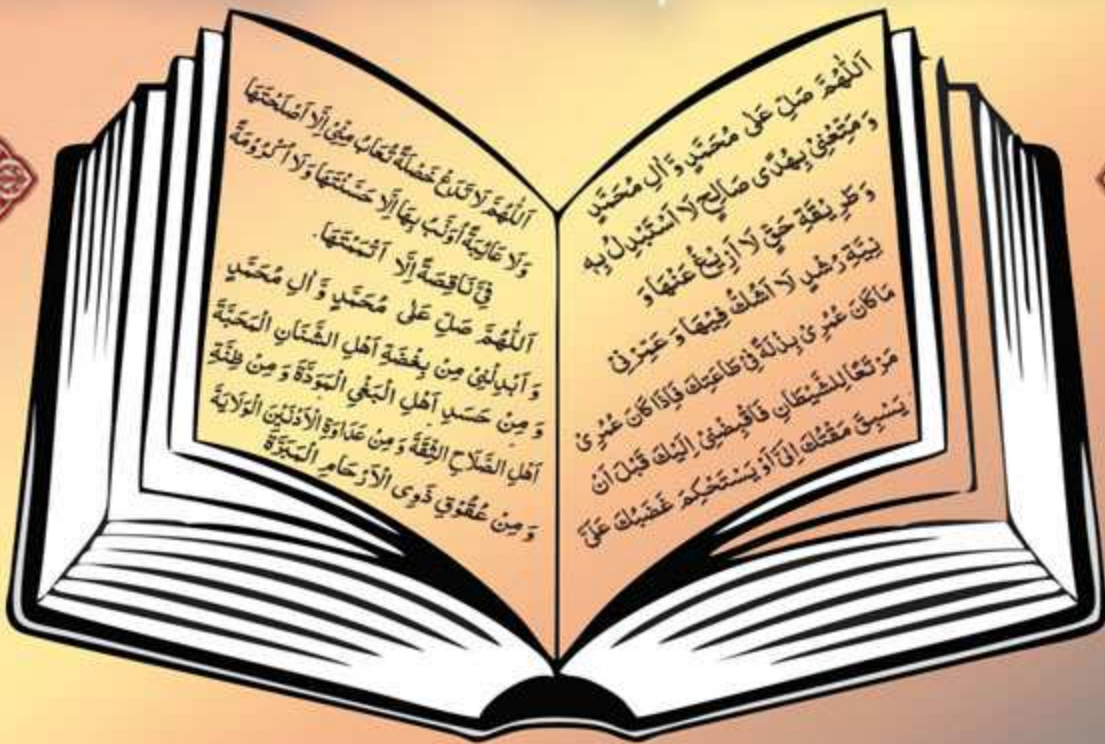 اَللّٰهُمَّ صَلِّ عَلٰى مُحَمَّدٍ وَّ اٰلِ مُحَمَّدٍ
وَ مَتِّعْنِیْ بِهُدًى صَالِحٍ لَا اَسْتَبْدِلُ بِهٖ
وَ طَرِیْقَةِ حَقٍّ لَا اَزِیْغُ عَنْهَا وَ
نِیَّةِ رُشْدٍ لَا اَشُكُّ فِیْهَا وَ عَمِّرْنِیْ
مَا كَانَ عُمُرِیْ بِذْلَةً فِیْ طَاعَتِكَ فَاِذَا كَانَ عُمُرِیْ
مَرْتَعًا لِلشَّیْطَانِ فَاقْبِضْنِیْ اِلَیْكَ قَبْلَ اَنْ
یَسْبِقَ مَقْتُكَ اِلَیَّ اَوْ یَسْتَحْكِمَ غَضَبُكَ عَلَیَّ
اَللّٰهُمَّ لَا تَدَعْ خَصْلَةً تُعَابُ مِنِّیْ اِلَّا اَصْلَحْتَهَا
وَلَا عَائِبَةً اُوَنَّبُ بِهَا اِلَّا حَسَّنْتَهَا وَلَا اُكْرُوْمَةً
فِیَّ نَاقِصَةً اِلَّا اَتْمَمْتَهَا.
اَللّٰهُمَّ صَلِّ عَلٰى مُحَمَّدٍ وَّ اٰلِ مُحَمَّدٍ
وَ اَبْدِلْنِیْ مِنْ بِغْضَةِ اَهْلِ الشَّنَاٰنِ الْمَحَبَّةَ
وَ مِنْ حَسَدِ اَهْلِ الْبَغْیِ الْمَوَدَّةَ وَ مِنْ ظِنَّةِ
اَهْلِ الصَّلَاحِ الثِّقَةَ وَ مِنْ عَدَاوَةِ الْاَدْنَیْنَ الْوَلَایَةَ
وَ مِنْ عُقُوْقِ ذَوِی الْاَرْحَامِ الْمَبَرَّةَ